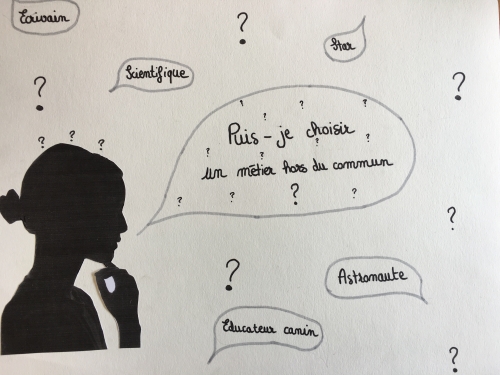 Ecrivain
?
Star
Scientifique
?
?
? ? ?
? ? ?
?
Puis-je choisir
? ? ? ?
un métier hors du commun
? ? ? ?
? ? ?
?
?
Astronaute
Educateur canin
?